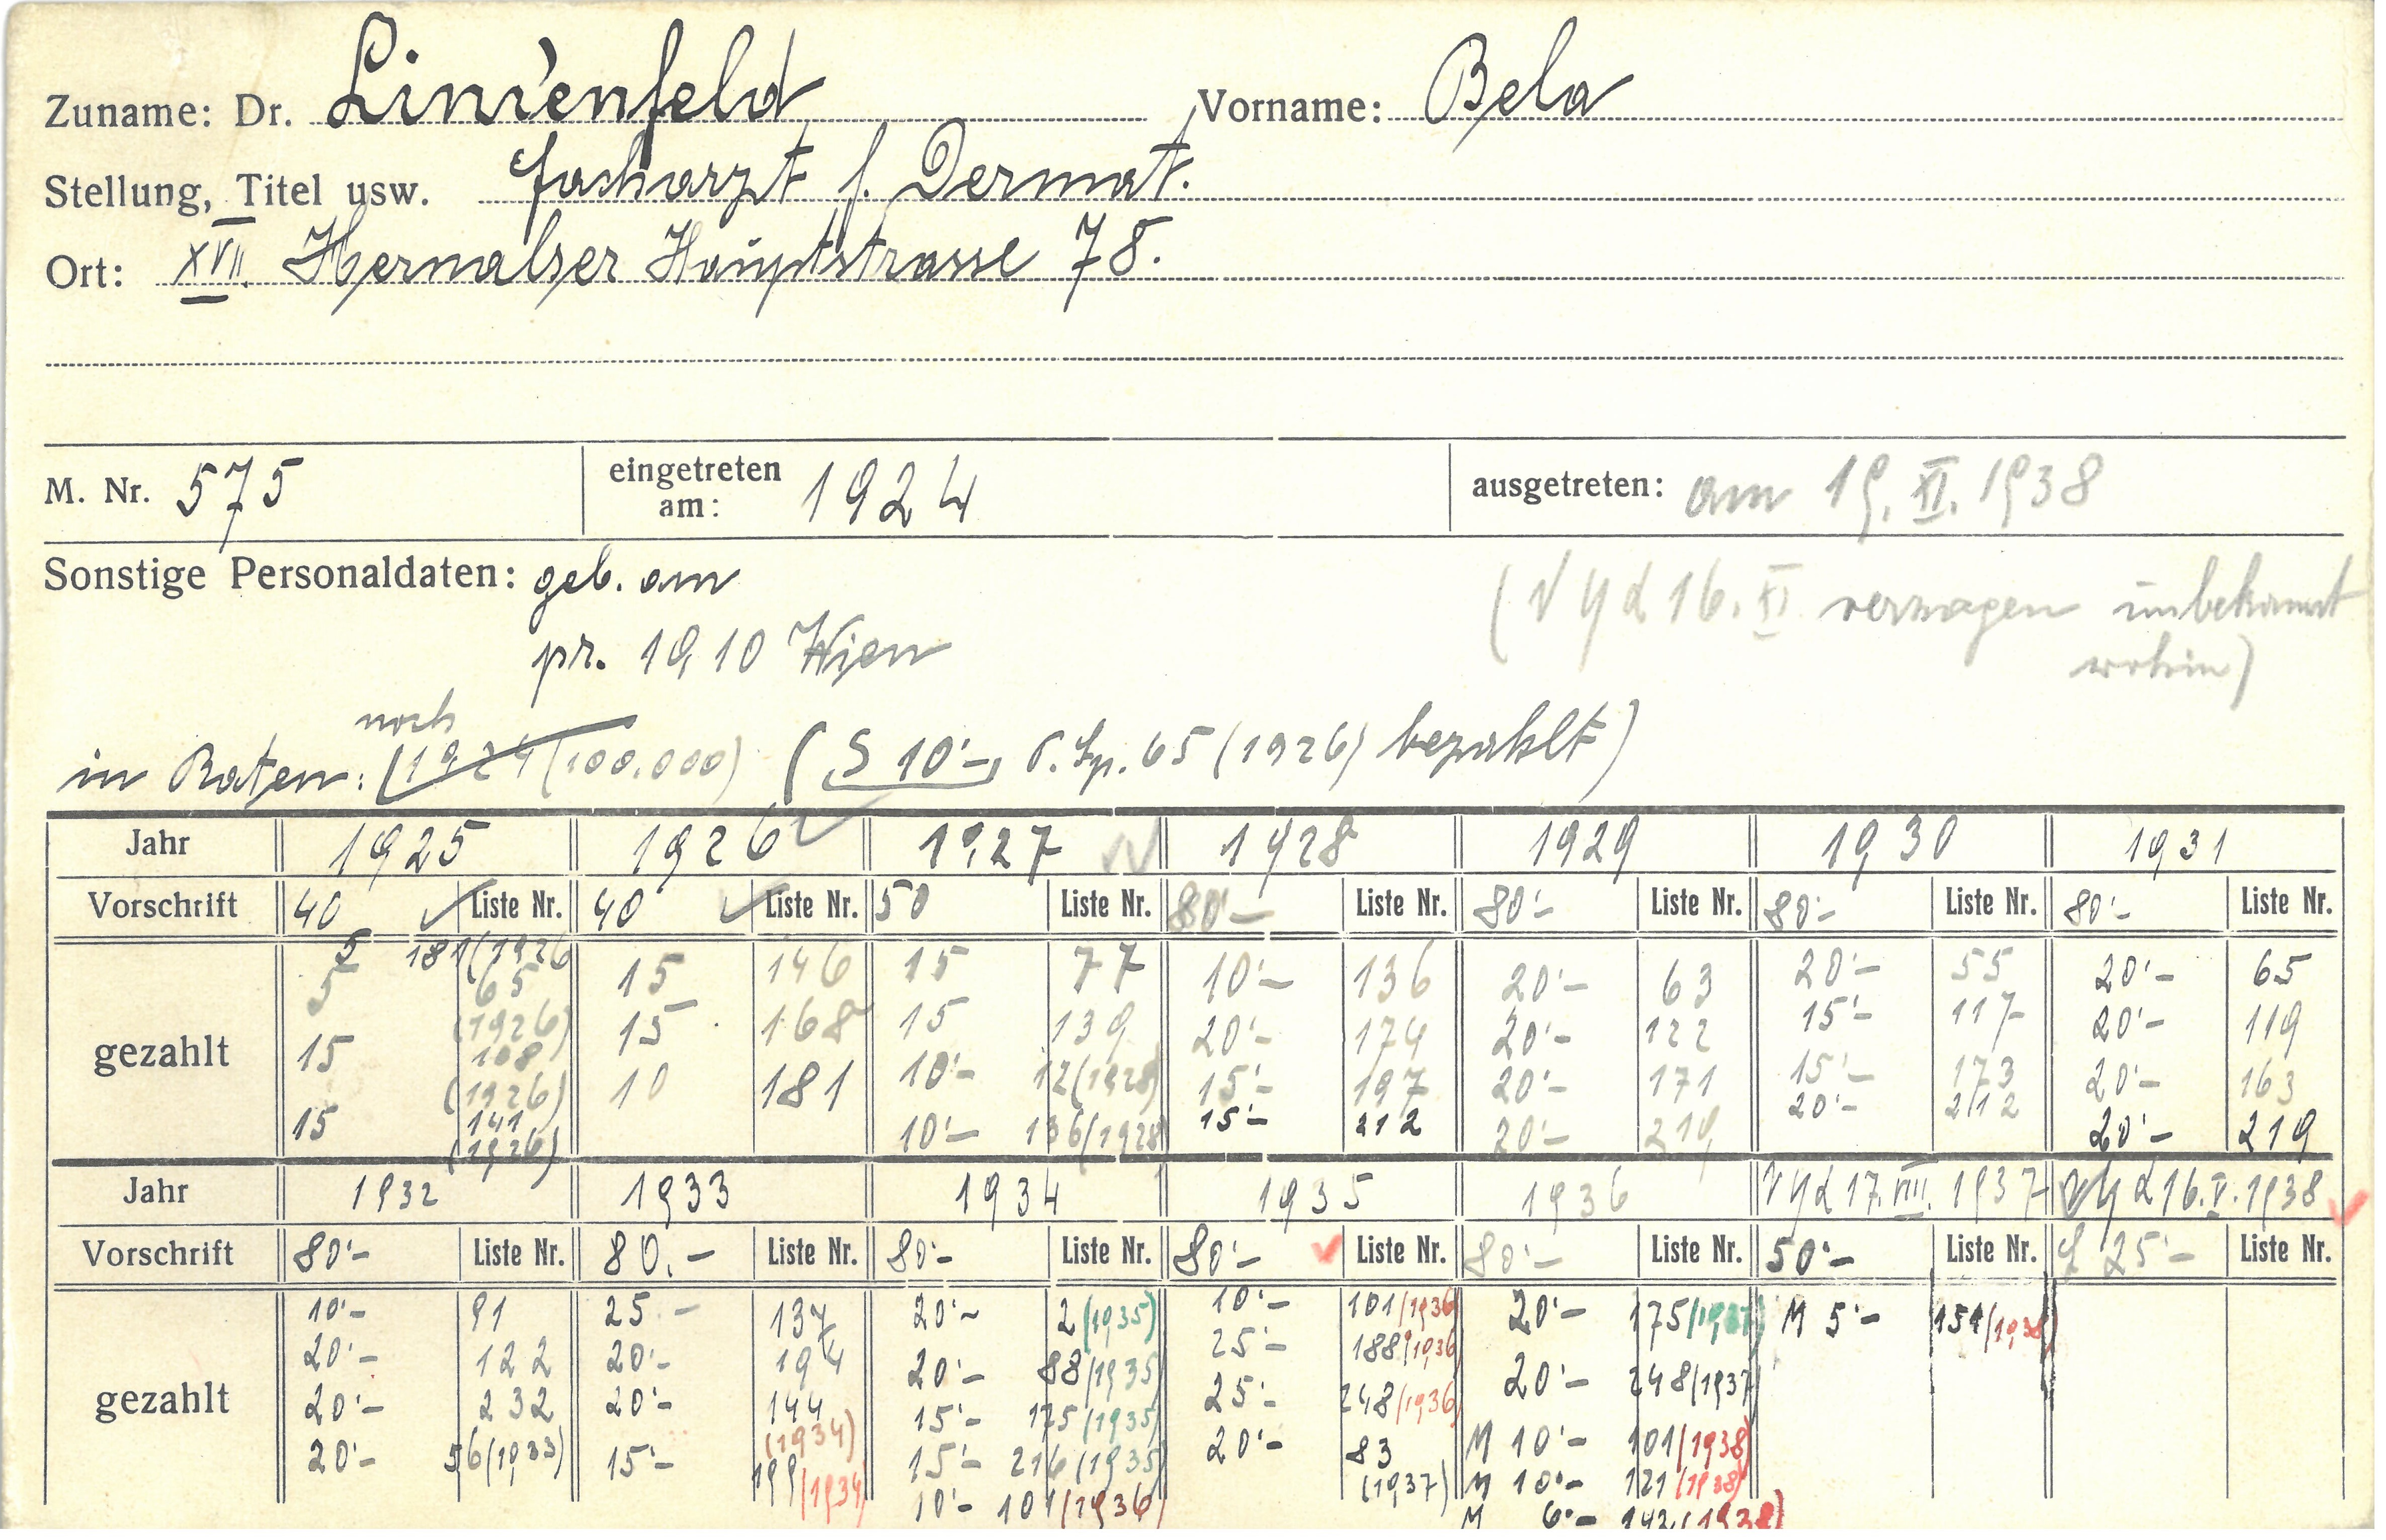 Zuname: Dr. Linienfeld Vorname: Bela
Stellung, Titel usw. Facharzt f. Dermat.
Ort: XVII. Hernalser Hauptstrasse 78.
M. Nr. 575 eingetreten am: 1924 ausgetreten: am 19. XI. 1938
Sonstige Personaldaten: geb. am
(V y d 16. XI verzogen unbekannt
wohin)
pr. 1910 Wien
noch
in Raten: (1924 (100.000) (S 10'- 65 (1926) bezahlt)
Jahr 1925 1926 1927 1928 1929 1930 1931
Vorschrift 40 Liste Nr. 40 Liste Nr. 50 Liste Nr. 80'- Liste Nr. 80'- Liste Nr. 80'- Liste Nr. 80'- Liste Nr.
5 181 (1926
5 65 15 146 15 77 10'- 136 20'- 63 20'- 55 20'- 65
(1926) 15 168 15 139 20'- 174 20'- 122 15'- 117 20'- 119
gezahlt 15 108
(1926) 10 181 10'- 12 (1928) 15'- 197 20'- 171 15'- 173 20'- 163
15 141 10'- 136 (1928) 15'- 212 20'- 219 20'- 212 20'- 219
(1926)
Jahr 1932 1933 1934 1935 1936 V y d 17. VIII. 1937 V y d 16. V. 1938
Vorschrift 80'- Liste Nr. 80.- Liste Nr. 80'- Liste Nr. 80'- Liste Nr. 80'- Liste Nr. 50'- Liste Nr. 25'- Liste Nr.
10'- 91 25.- 137 20'- 2 (1935) 10'- 101/1936 20'- 175/1937 M 5'- 154/1938
20'- 122 20'- 194 20'- 88/1935 25'- 188/1936 20'- 248/1937
gezahlt 20'- 232 20'- 144 15'- 175 (1935) 25'- 248/1936
(1934) M 10'- 101/1938)
20'- 56 (1933) 15'- 199/1934 15'- 216 (1935) 20'- 83 M 10'- 121 (1938)
(1937)
10'- 101/1936 M 6'- 142 (1938)